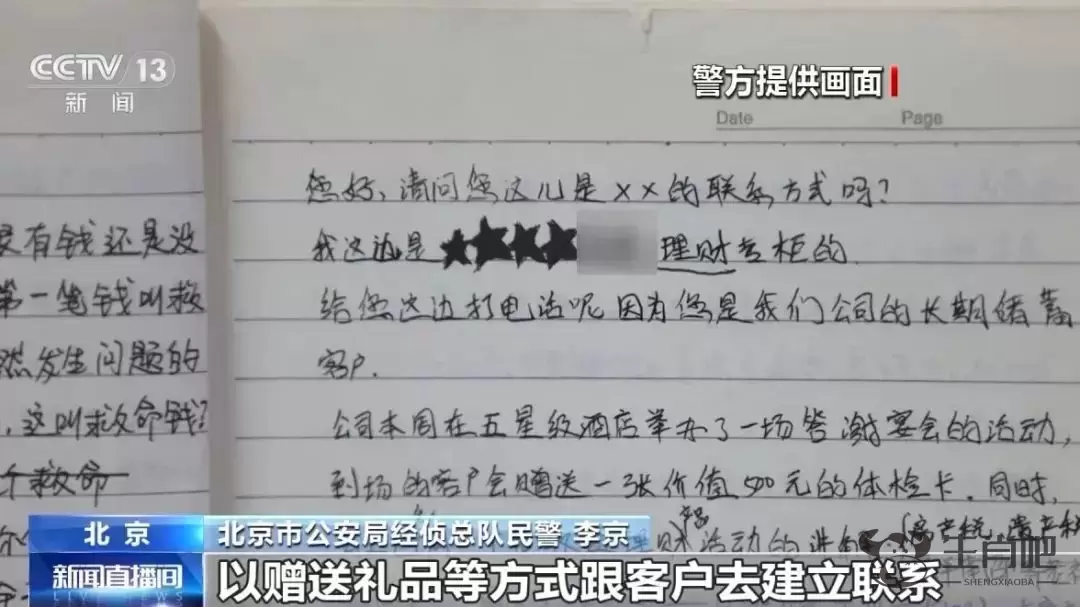 CCTV 13
新闻
警方提供画面
Date Page
有钱还是没
第一笔钱叫救
然发生问题的
,这叫救命钱
个救命
您好,请问您这儿是××的联系方式吗?
我这边是★★★★ 理财专柜的
给您这边打电话呢因为您是我们公司的长期储蓄
客户.
公司本周在五星级酒店举办了一场答谢宴会的活动,
到场的客户会赠送一张价值500元的体检卡.同时,
北京
北京市公安局经侦总队民警 李京
新闻直播间
LIVE NEWS
以赠送礼品等方式跟客户去建立联系
生肖吧
SHENGXIAOBA